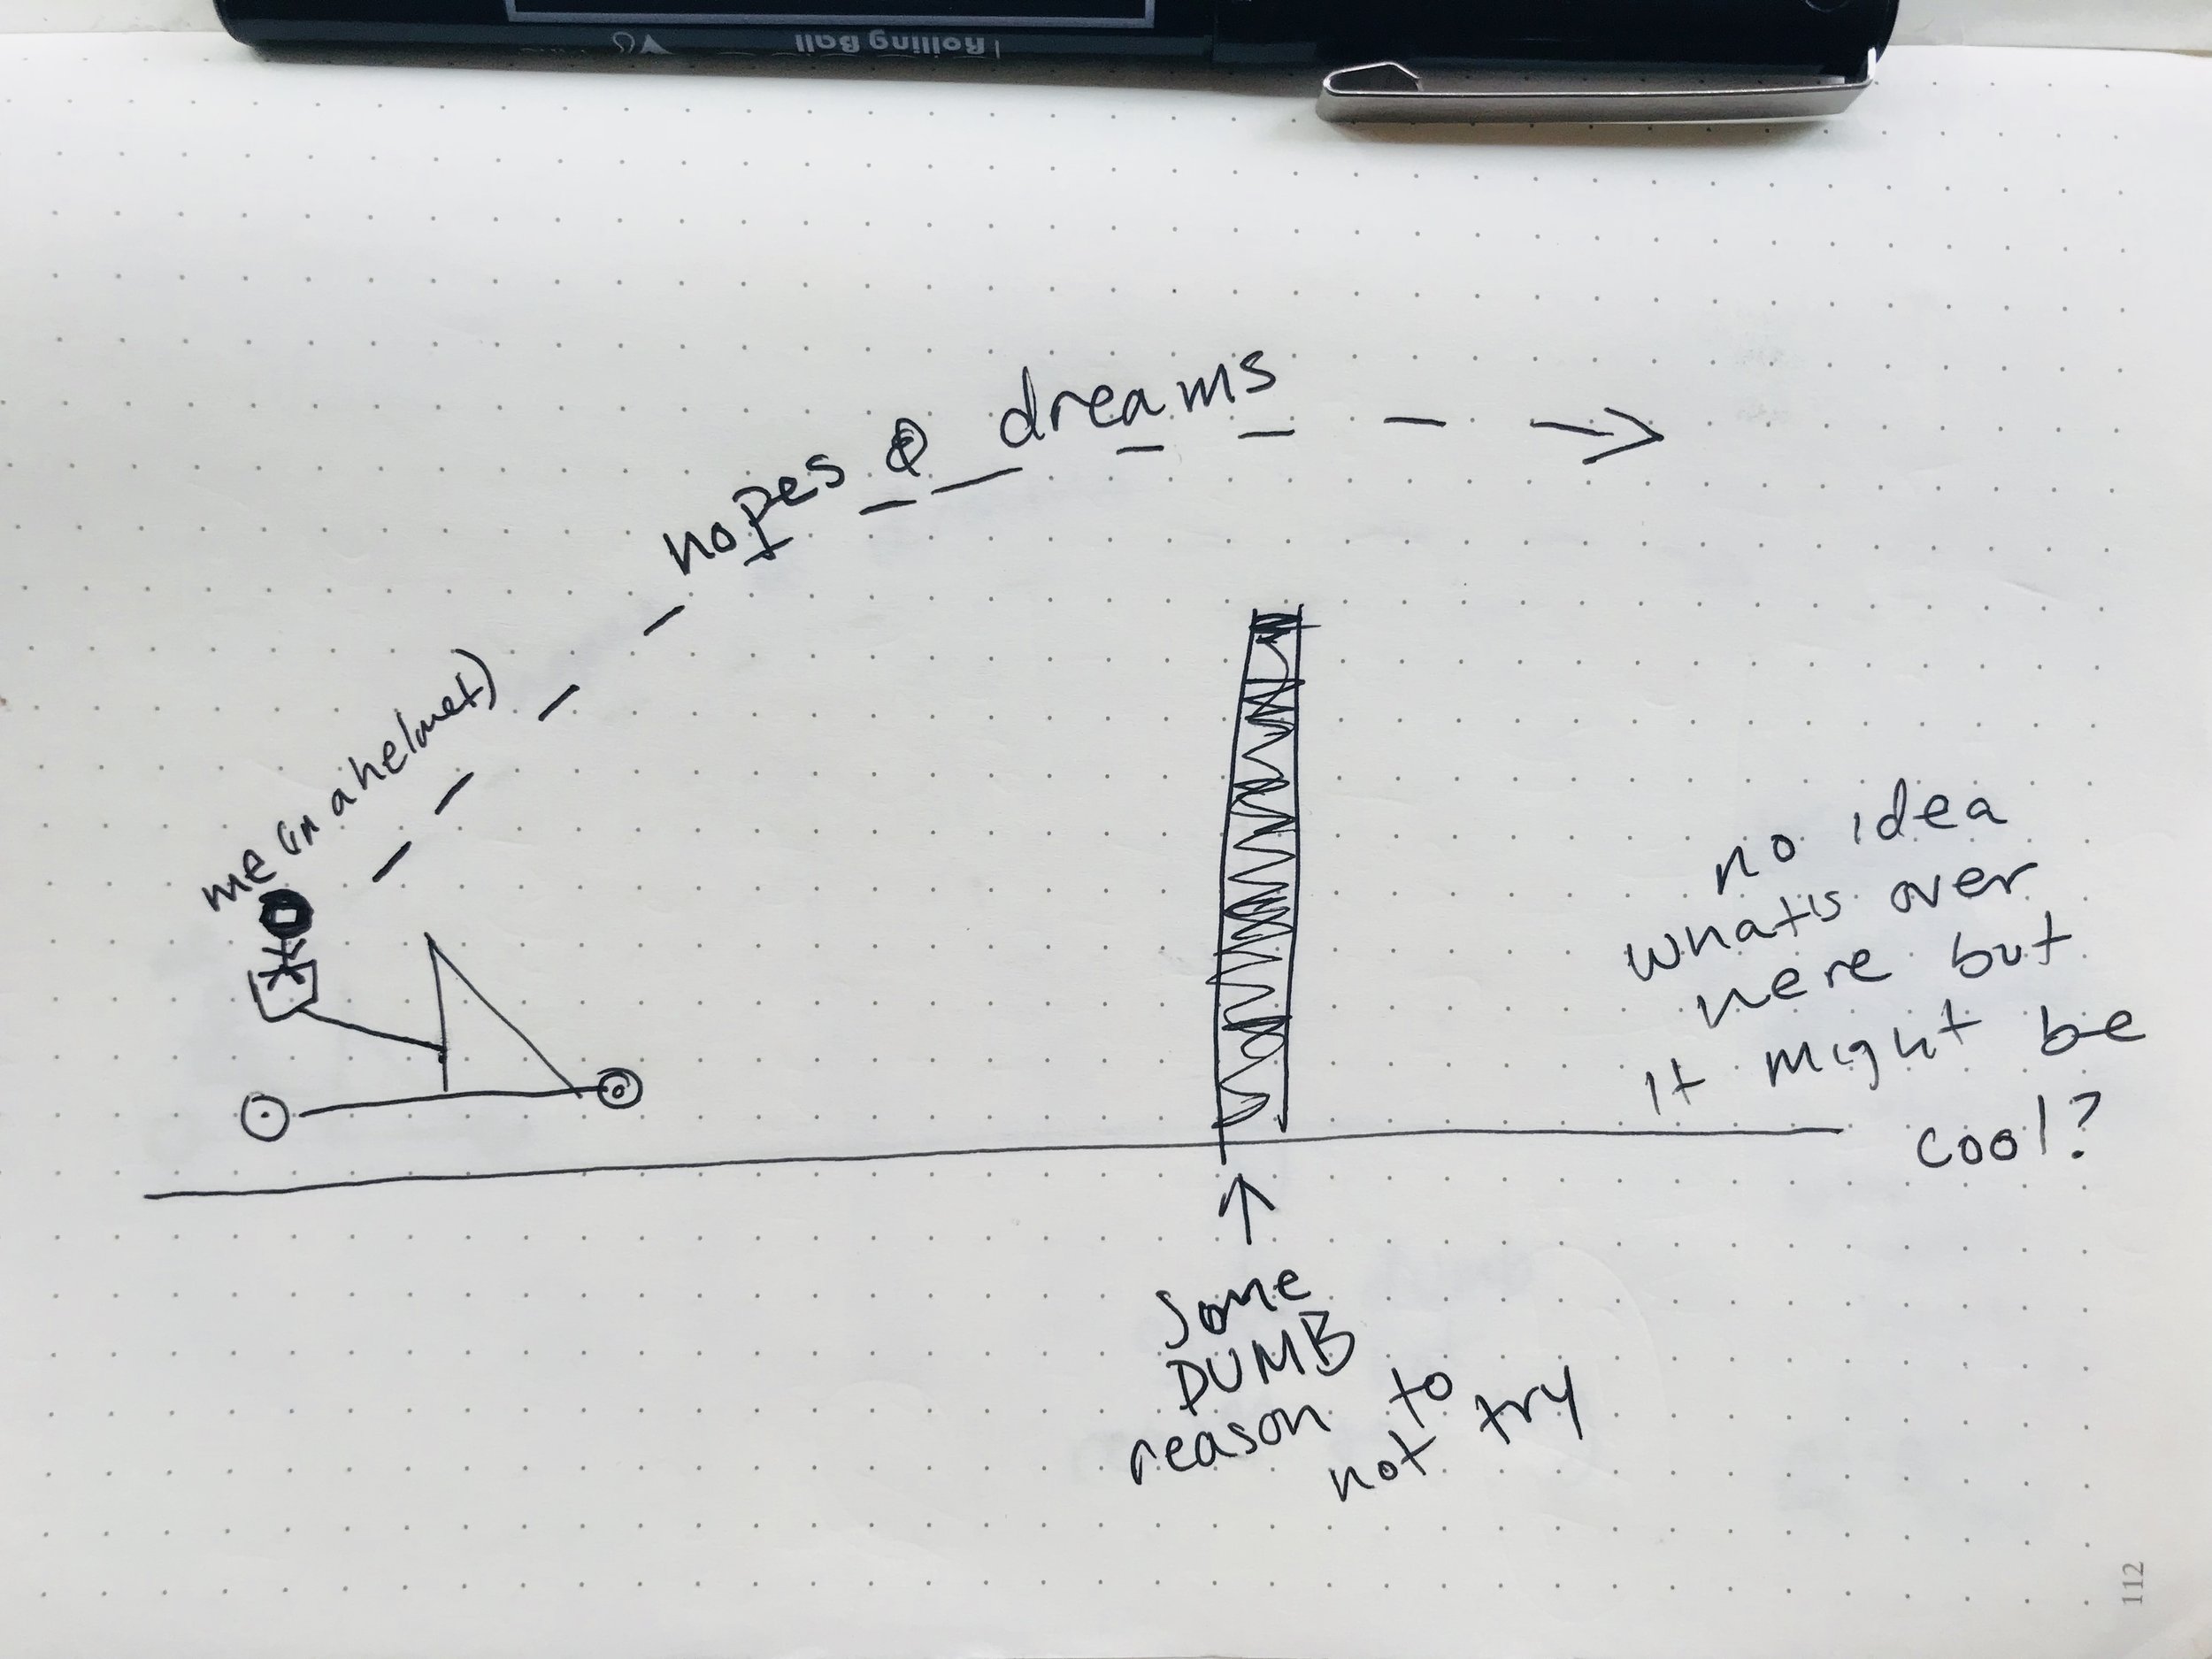 Rolling Ball
hopes & dreams
me (in a helmet)
no idea
what's over
here but
it might be
cool?
some
DUMB
reason to
not try
112